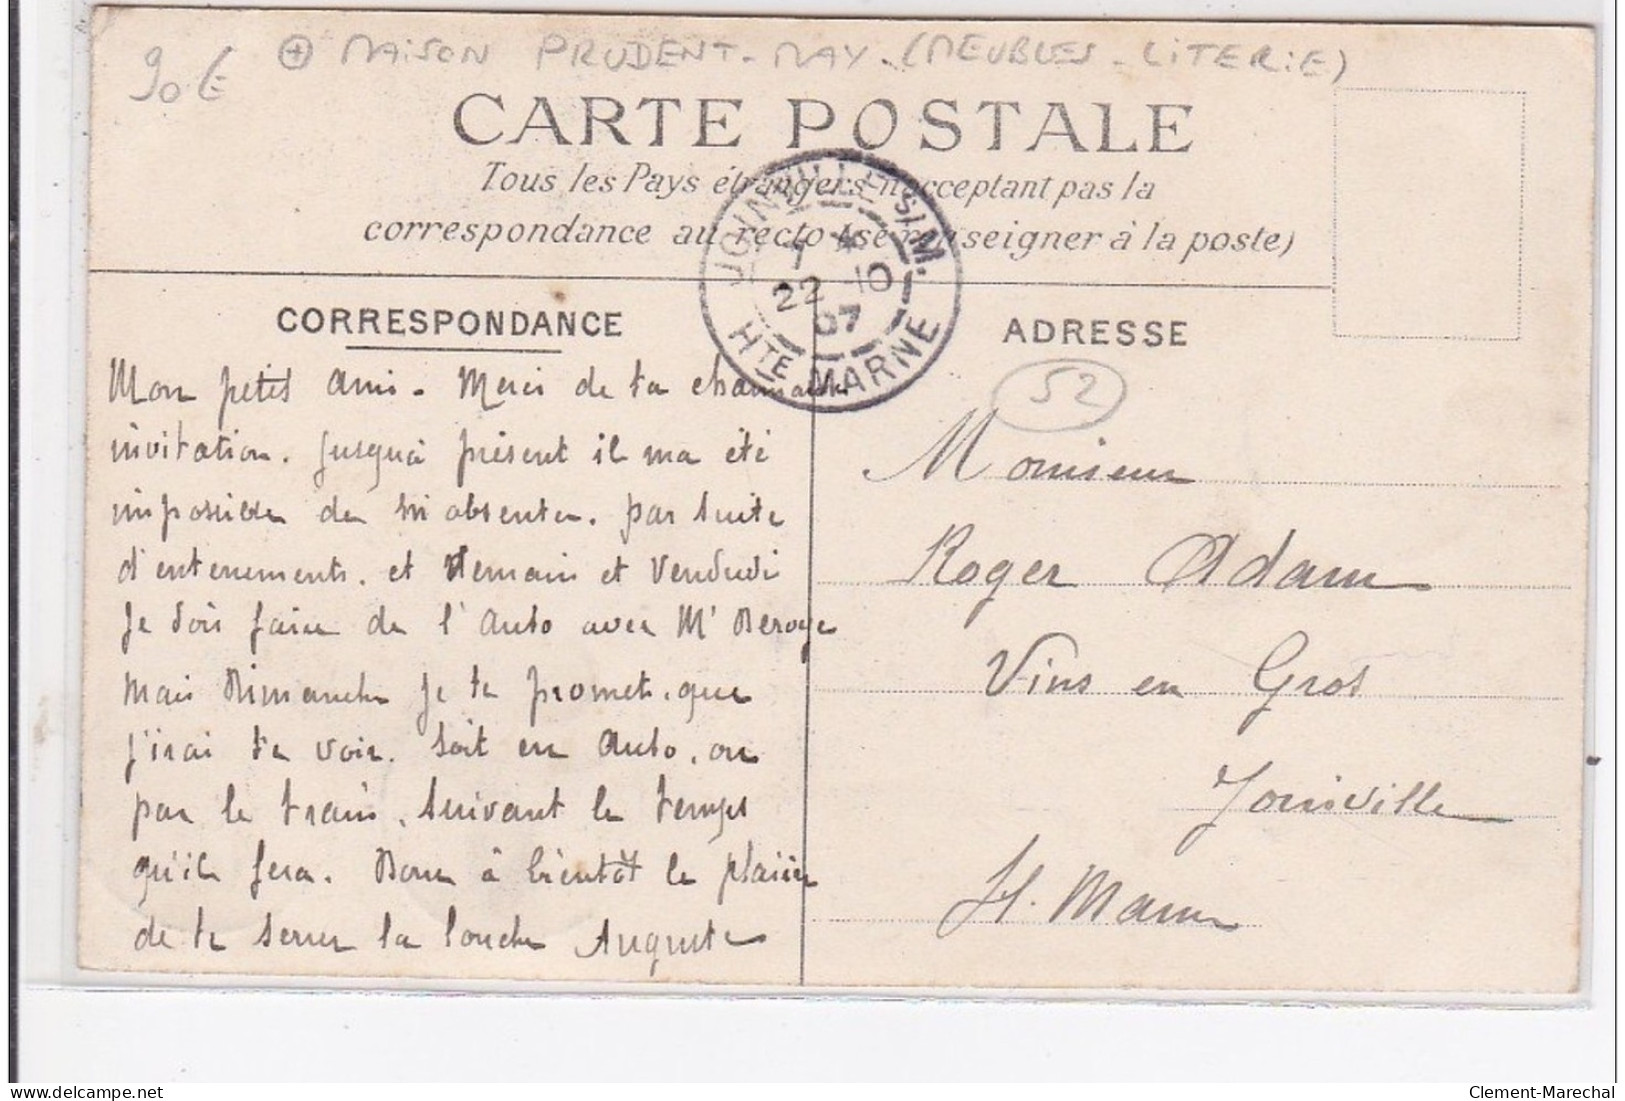 90€ + MAISON PRUDENT-MAY. (MEUBLES - LITERIE)
CARTE POSTALE
Tous les Pays étrangers n'acceptant pas la
correspondance au recto (se renseigner à la poste)
JOINVILLE S/M.
22 -10
07
HTE MARNE
CORRESPONDANCE
Mon petit ami. Merci de ta charmante
invitation. Jusqu'à présent il m'a été
impossible de m'absenter. par suite
d'enterrements. et demain et vendredi
je dois faire de l'auto avec Mr Deroye
mais dimanche je te promets. que
j'irai te voir. soit en auto. ou
par le train. suivant le temps
qu'il fera. Donc à bientôt le plaisir
de te serrer la louche Auguste
ADRESSE
52
Monsieur
Roger Adam
Vins en Gros
Joinville
H. Marne
Clement-Marechal